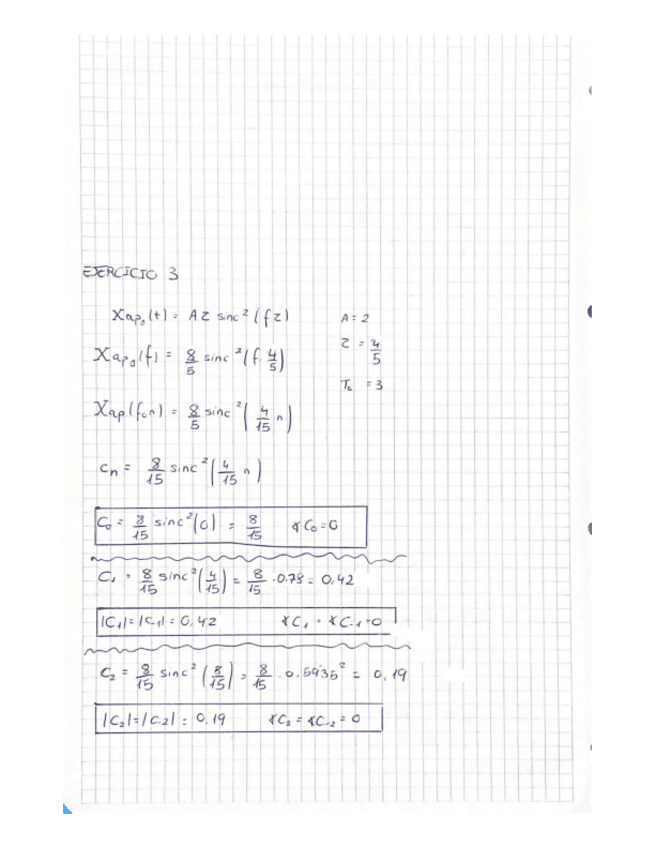 EJERCICIO 3
Xap₀(t) = Aτ sinc²(fτ) A = 2
Xap₀(f) = 8/5 sinc²(f·4/5) τ = 4/5
T₀ = 3
Xap(f₀n) = 8/5 sinc²(4/15 n)
cn = 8/15 sinc²(4/15 n)
C₀ = 8/15 sinc²(0) = 8/15 ∢C₀=0
C₁ = 8/15 sinc²(4/15) = 8/15 · 0.78 = 0,42
|C₁| = |C₋₁| = 0,42 ∢C₁ = ∢C₋₁=0
C₂ = 8/15 sinc²(8/15) = 8/15 · 0.5935² = 0,19
|C₂| = |C₋₂| = 0,19 ∢C₂ = ∢C₋₂ = 0